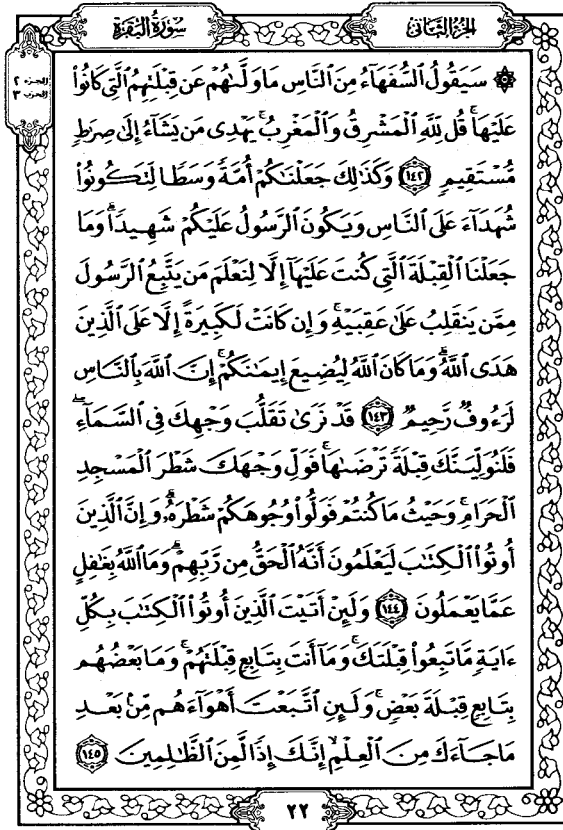 سُورَةُ الْبَقَرَةِ
الجُزْءُ الثَّانِي
الجزء ٢
الحزب ٣
۞ سَيَقُولُ ٱلسُّفَهَآءُ مِنَ ٱلنَّاسِ مَا وَلَّىٰهُمْ عَن قِبْلَتِهِمُ ٱلَّتِى كَانُوا۟
عَلَيْهَا ۚ قُل لِّلَّهِ ٱلْمَشْرِقُ وَٱلْمَغْرِبُ ۚ يَهْدِى مَن يَشَآءُ إِلَىٰ صِرَٰطٍ
مُّسْتَقِيمٍ ﴿١٤٢﴾ وَكَذَٰلِكَ جَعَلْنَٰكُمْ أُمَّةً وَسَطًا لِّتَكُونُوا۟
شُهَدَآءَ عَلَى ٱلنَّاسِ وَيَكُونَ ٱلرَّسُولُ عَلَيْكُمْ شَهِيدًا ۗ وَمَا
جَعَلْنَا ٱلْقِبْلَةَ ٱلَّتِى كُنتَ عَلَيْهَآ إِلَّا لِنَعْلَمَ مَن يَتَّبِعُ ٱلرَّسُولَ
مِمَّن يَنقَلِبُ عَلَىٰ عَقِبَيْهِ ۚ وَإِن كَانَتْ لَكَبِيرَةً إِلَّا عَلَى ٱلَّذِينَ
هَدَى ٱللَّهُ ۗ وَمَا كَانَ ٱللَّهُ لِيُضِيعَ إِيمَٰنَكُمْ ۚ إِنَّ ٱللَّهَ بِٱلنَّاسِ
لَرَءُوفٌ رَّحِيمٌ ﴿١٤٣﴾ قَدْ نَرَىٰ تَقَلُّبَ وَجْهِكَ فِى ٱلسَّمَآءِ ۖ
فَلَنُوَلِّيَنَّكَ قِبْلَةً تَرْضَىٰهَا ۚ فَوَلِّ وَجْهَكَ شَطْرَ ٱلْمَسْجِدِ
ٱلْحَرَامِ ۚ وَحَيْثُ مَا كُنتُمْ فَوَلُّوا۟ وُجُوهَكُمْ شَطْرَهُۥ ۗ وَإِنَّ ٱلَّذِينَ
أُوتُوا۟ ٱلْكِتَٰبَ لَيَعْلَمُونَ أَنَّهُ ٱلْحَقُّ مِن رَّبِّهِمْ ۗ وَمَا ٱللَّهُ بِغَٰفِلٍ
عَمَّا يَعْمَلُونَ ﴿١٤٤﴾ وَلَئِنْ أَتَيْتَ ٱلَّذِينَ أُوتُوا۟ ٱلْكِتَٰبَ بِكُلِّ
ءَايَةٍ مَّا تَبِعُوا۟ قِبْلَتَكَ ۚ وَمَآ أَنتَ بِتَابِعٍ قِبْلَتَهُمْ ۚ وَمَا بَعْضُهُم
بِتَابِعٍ قِبْلَةَ بَعْضٍ ۚ وَلَئِنِ ٱتَّبَعْتَ أَهْوَآءَهُم مِّنۢ بَعْدِ
مَا جَآءَكَ مِنَ ٱلْعِلْمِ ۙ إِنَّكَ إِذًا لَّمِنَ ٱلظَّٰلِمِينَ ﴿١٤٥﴾
٢٢